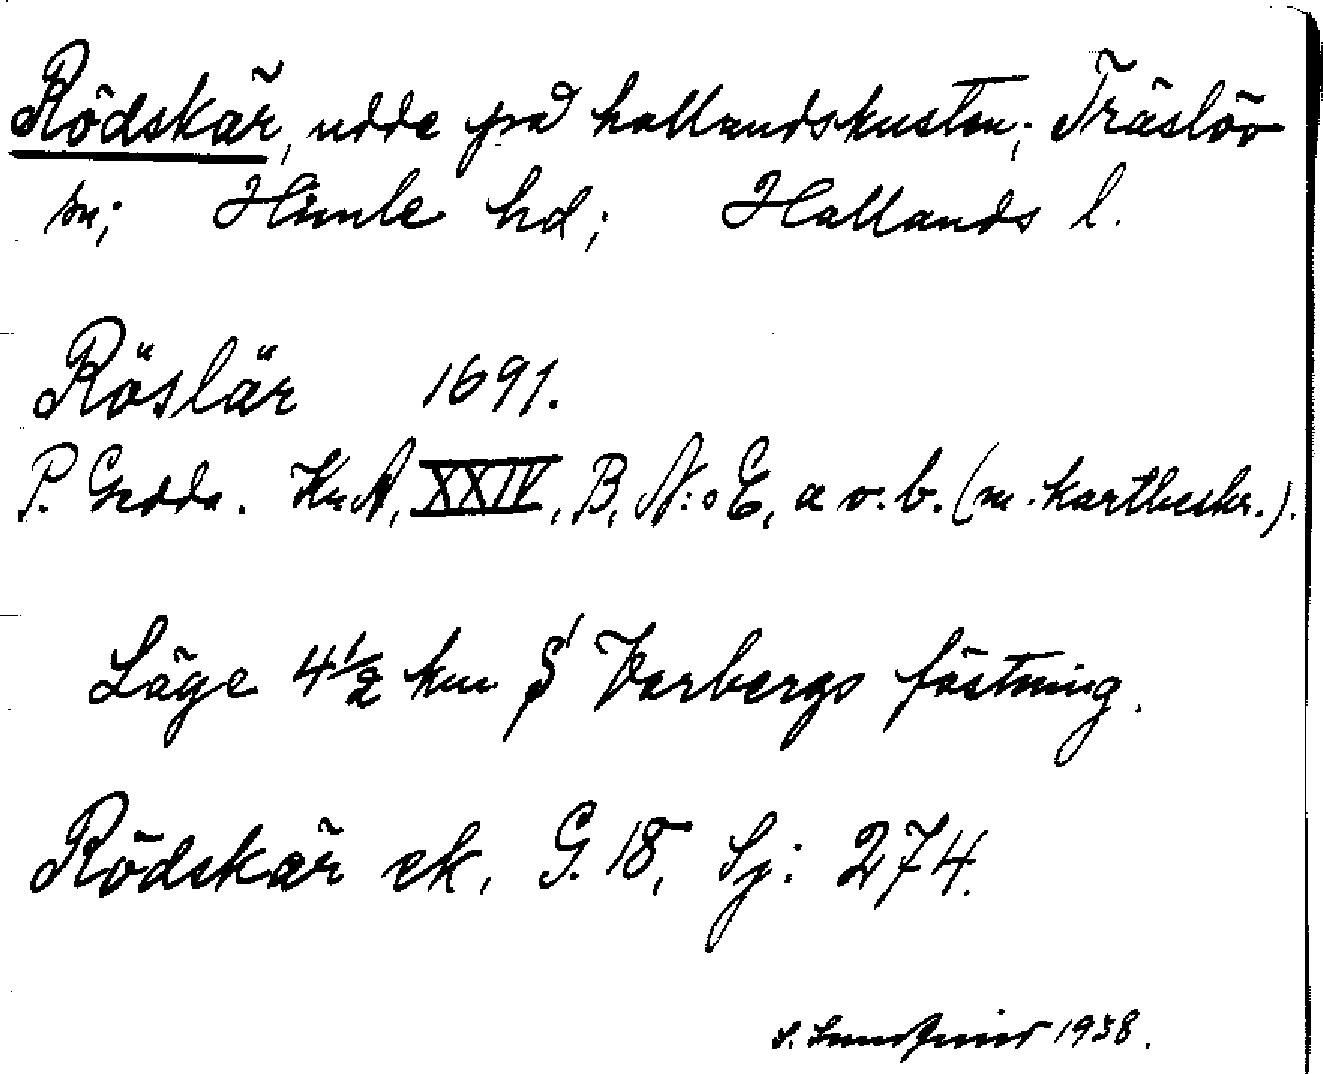 Rödskär, udde på hallandskusten; Träslöv
sn; Himle hd; Hallands l.
Röslär 1691.
P. Gedda. Kr.A, XXIV, B, N:o E, a o. b. (m. kartbeskr.).
Läge 4½ km S Varbergs fästning.
Rödskär ek. G. 18, Sj: 274.
1938.